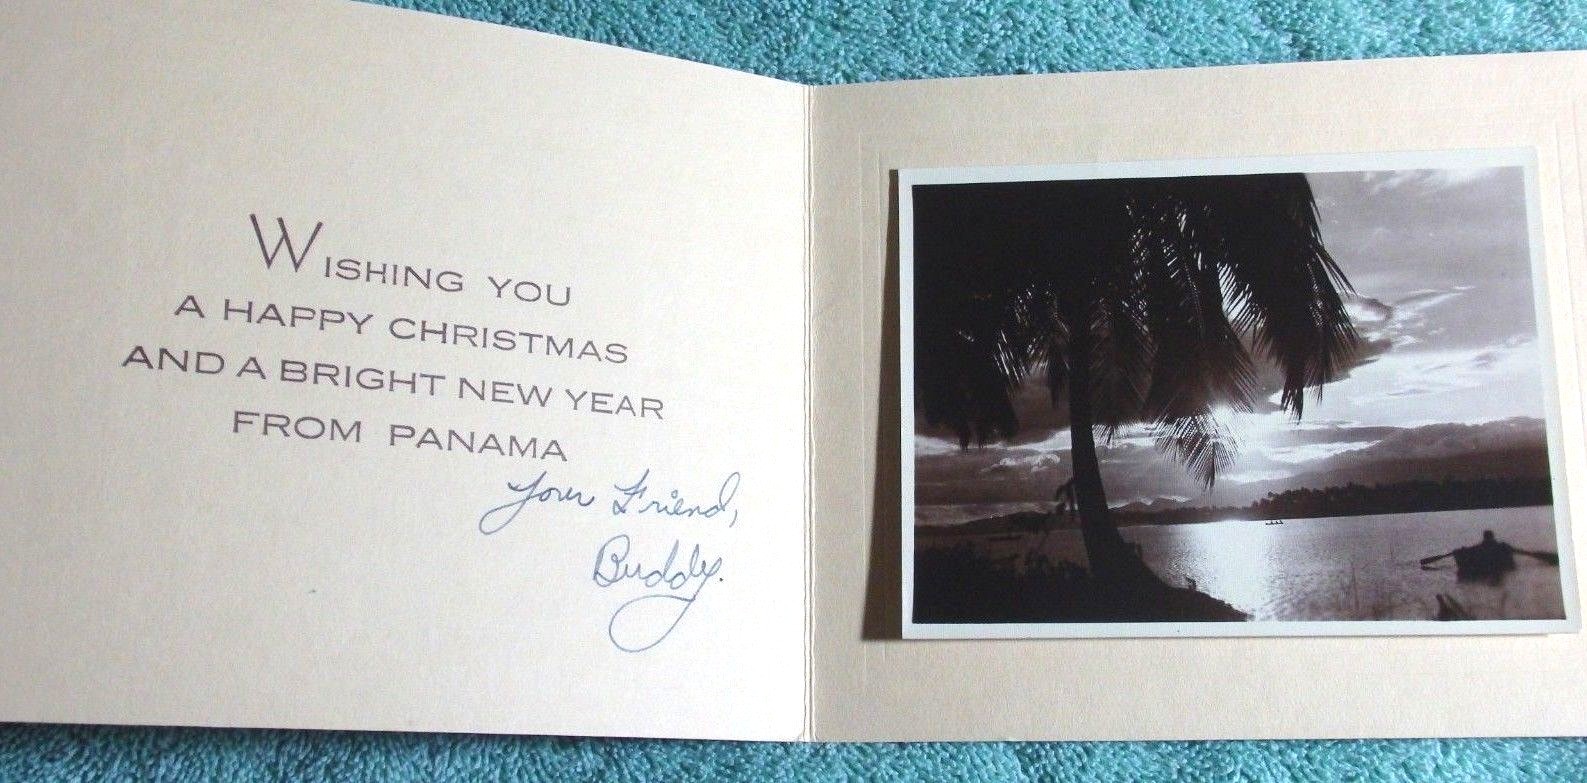 WISHING YOU
A HAPPY CHRISTMAS
AND A BRIGHT NEW YEAR
FROM PANAMA
Your Friend,
Buddy.